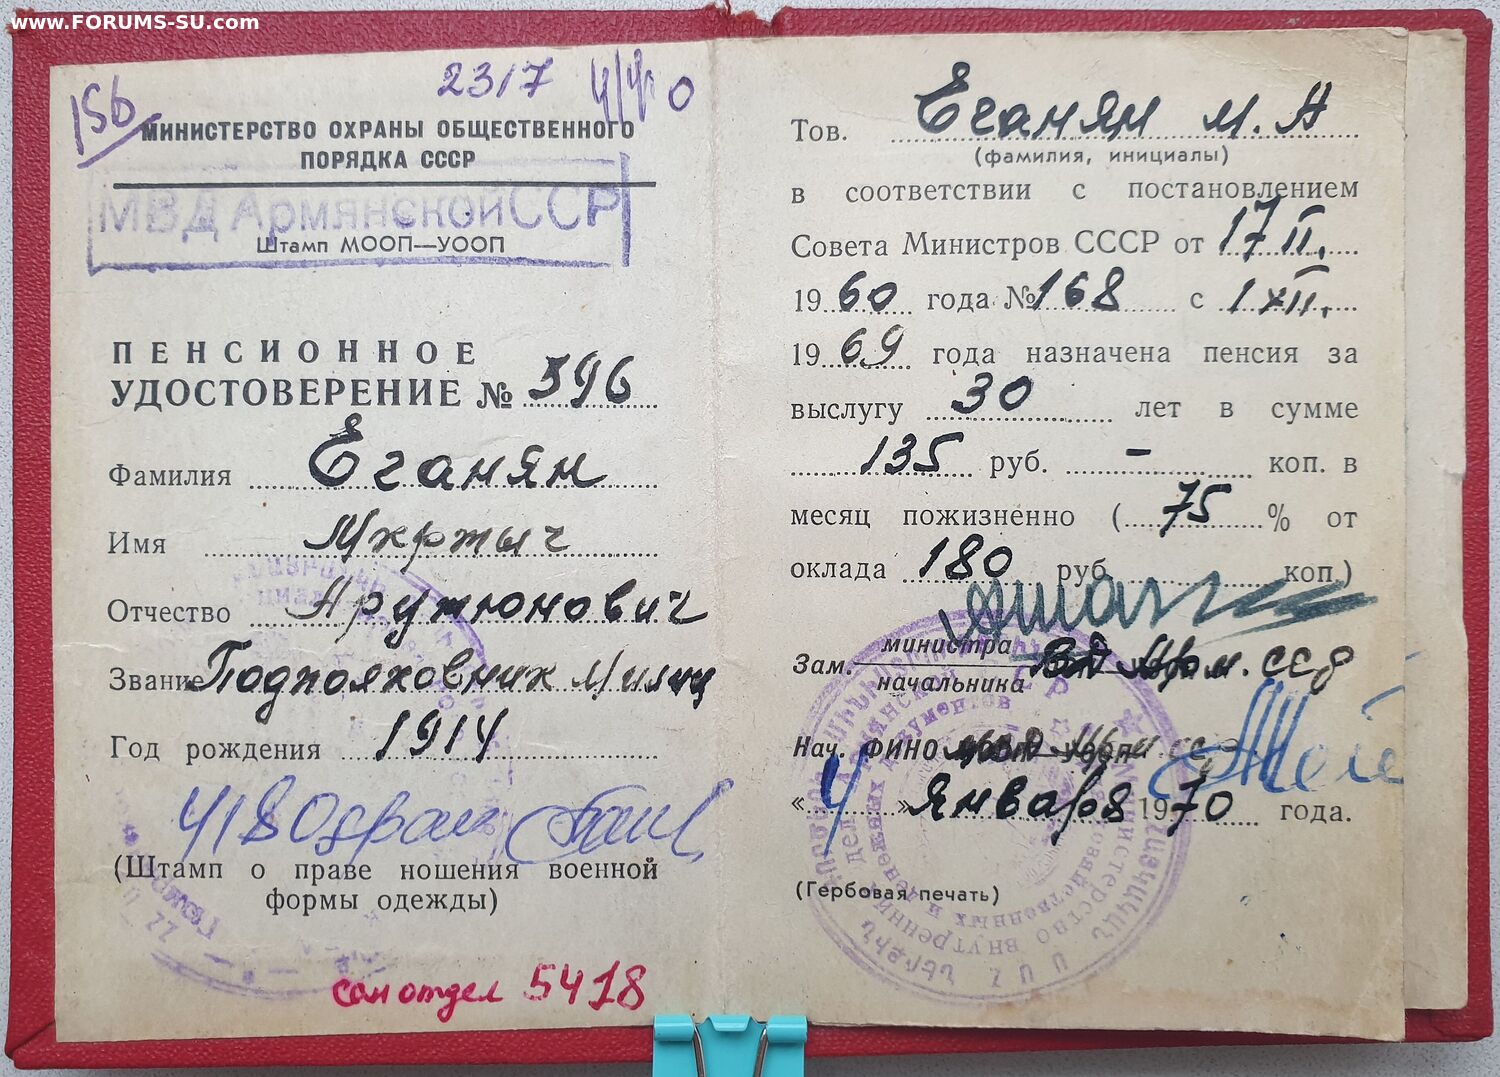 www.FORUMS-SU.com
156
2317
МИНИСТЕРСТВО ОХРАНЫ ОБЩЕСТВЕННОГО
ПОРЯДКА СССР
МВД Армянской ССР
Штамп МООП—УООП
ПЕНСИОННОЕ
УДОСТОВЕРЕНИЕ № 396
Фамилия Еганян
Имя Мхртыч
Отчество Арутюнович
Звание Подполковник Милиц
Год рождения 1914
(Штамп о праве ношения военной
формы одежды)
сан отдел 5418
Тов. Еганян М. А
(фамилия, инициалы)
в соответствии с постановлением
Совета Министров СССР от 17 II.
1960 года № 168 с 1 XII.
1969 года назначена пенсия за
выслугу 30 лет в сумме
135 руб. - коп. в
месяц пожизненно (75 % от
оклада 180 руб. коп.)
Зам. министра
начальника
ВД Арм. ССР
Нач. ФИНО
«4» Января 1970 года.
(Гербовая печать)